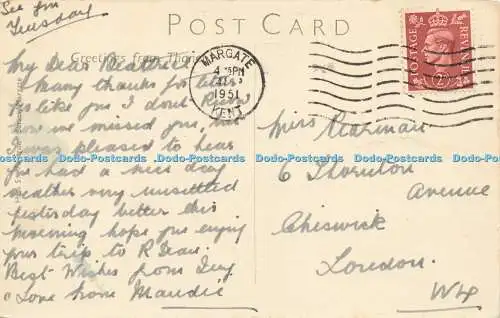 See you
Tuesday
POST CARD
Greetings from
My Dear Beatrice
Many thanks for letter
yes like you I dont know
how we missed you, but
I was pleased to hear
you had a nice day
weather very unsettled
yesterday better this
morning hope you enjoy
your trip to R Dean.
Best Wishes from Ivy
& Love from Maudie
MARGATE
4 15PM
1951
KENT
POSTAGE
REVENUE
2D
Miss Pearman
6 Thornton
Avenue
Chiswick
London.
W4
Dodo-Postcards Dodo-Postcards Dodo-Postcards Dodo-Postcards Dodo-Postcards Dodo-Postcards